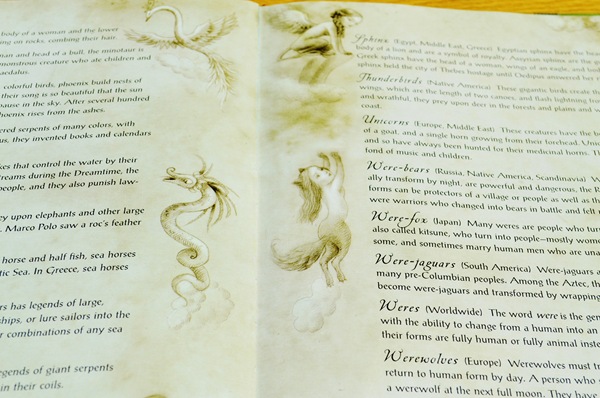 body of a woman and the lower
ing on rocks, combing their hair.
man and head of a bull, the minotaur is
monstrous creature who ate children and
aedalus.
colorful birds, phoenix build nests of
their song is so beautiful that the sun
pause in the sky. After several hundred
hoenix rises from the ashes.
ered serpents of many colors, with
us, they invented books and calendars
kes that control the water by their
reams during the Dreamtime, the
people, and they also punish law-
ey upon elephants and other large
. Marco Polo saw a roc's feather
horse and half fish, sea horses
tic Sea. In Greece, sea horses
rs has legends of large,
ships, or lure sailors into the
r combinations of any sea
legends of giant serpents
in their coils.
Sphinx (Egypt, Middle East, Greece) Egyptian sphinx have the
body of a lion and are a symbol of royalty. Assyrian sphinx are the
Greek sphinx have the head of a woman, wings of an eagle, and
sphinx held the city of Thebes hostage until Oedipus answered her
Thunderbirds (Native America) These gigantic birds create th
wings, which are the length of two canoes, and flash lightning from
and wrathful, they prey upon deer in the forests and plains and
coast.
Unicorns (Europe, Middle East) These creatures have the b
of a goat, and a single horn growing from their forehead. Unic
and so have always been hunted for their medicinal horns. Th
fond of music and children.
Were-bears (Russia, Native America, Scandinavia) W
ally transform by night, are powerful and dangerous, the R
forms can be protectors of a village or people as well as th
were warriors who changed into bears in battle and felt n
Were-fox (Japan) Many weres are people who turn
also called kitsune, who turn into people—mostly wome
some, and sometimes marry human men who are una
Were-jaguars (South America) Were-jaguars a
many pre-Columbian peoples. Among the Aztec, th
become were-jaguars and transformed by wrapping
Weres (Worldwide) The word were is the gen
with the ability to change from a human into an
their forms are fully human or fully animal inste
Werewolves (Europe) Werewolves must tr
return to human form by day. A person who
a werewolf at the next full moon. They have